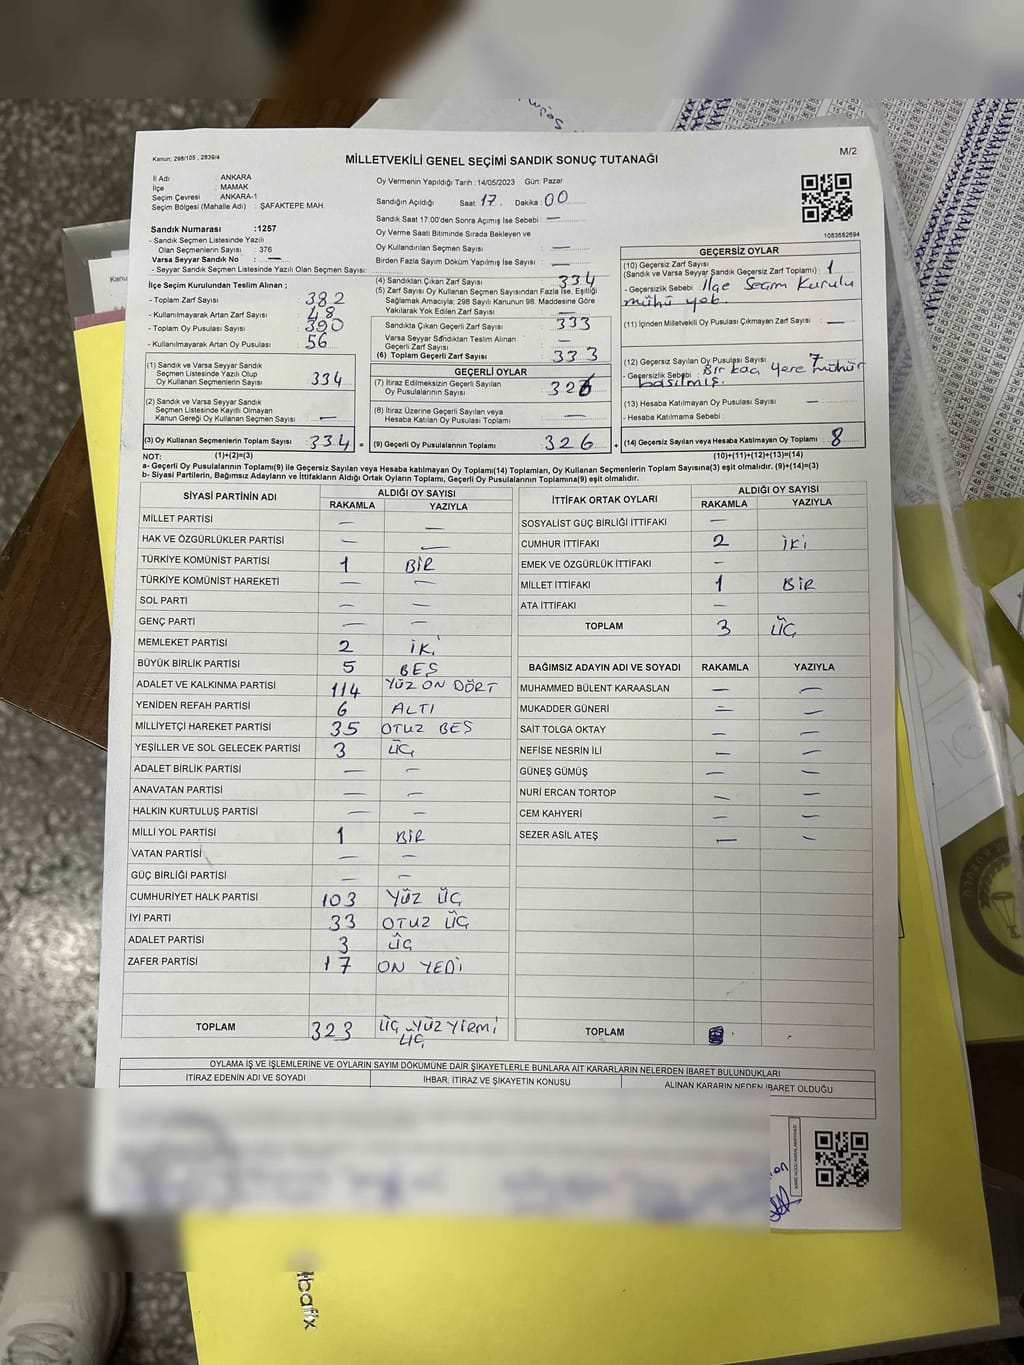 Kanun: 298/105 , 2839/4
MİLLETVEKİLİ GENEL SEÇİMİ SANDIK SONUÇ TUTANAĞI
M/2
İl Adı : ANKARA
İlçe : MAMAK
Seçim Çevresi : ANKARA-1
Seçim Bölgesi (Mahalle Adı) : ŞAFAKTEPE MAH.
Oy Vermenin Yapıldığı Tarih : 14/05/2023 Gün: Pazar
Sandığın Açıldığı Saat 17. Dakika : 00
Sandık Saat 17:00'den Sonra Açımış İse Sebebi : —
Oy Verme Saati Bitiminde Sırada Bekleyen ve
Oy Kullandırılan Seçmen Sayısı : —
Birden Fazla Sayım Döküm Yapılmış İse Sayısı : —
1083682694
Sandık Numarası : 1257
- Sandık Seçmen Listesinde Yazılı
Olan Seçmenlerin Sayısı : 376
Varsa Seyyar Sandık No : —
- Seyyar Sandık Seçmen Listesinde Yazılı Olan Seçmen Sayısı:
İlçe Seçim Kurulundan Teslim Alınan ;
- Toplam Zarf Sayısı : 382
- Kullanılmayarak Artan Zarf Sayısı : 48
- Toplam Oy Pusulası Sayısı : 390
- Kullanılmayarak Artan Oy Pusulası : 56
(1) Sandık ve Varsa Seyyar Sandık
Seçmen Listesinde Yazılı Olup
Oy Kullanan Seçmenlerin Sayısı : 334
(2) Sandık ve Varsa Seyyar Sandık
Seçmen Listesinde Kayıtlı Olmayan
Kanun Gereği Oy Kullanan Seçmen Sayısı : —
(3) Oy Kullanan Seçmenlerin Toplam Sayısı : 334 =
(4) Sandıktan Çıkan Zarf Sayısı : 334
(5) Zarf Sayısı Oy Kullanan Seçmen Sayısından Fazla İse, Eşitliği
Sağlamak Amacıyla, 298 Sayılı Kanunun 98. Maddesine Göre
Yakılarak Yok Edilen Zarf Sayısı : —
Sandıkta Çıkan Geçerli Zarf Sayısı : 333
Varsa Seyyar Sandıktan Teslim Alınan
Geçerli Zarf Sayısı : —
(6) Toplam Geçerli Zarf Sayısı : 333
GEÇERLİ OYLAR
(7) İtiraz Edilmeksizin Geçerli Sayılan
Oy Pusulalarının Sayısı : 326
(8) İtiraz Üzerine Geçerli Sayılan veya
Hesaba Katılan Oy Pusulası Toplamı : —
(9) Geçerli Oy Pusulalarının Toplamı : 326 +
GEÇERSİZ OYLAR
(10) Geçersiz Zarf Sayısı
(Sandık ve Varsa Seyyar Sandık Geçersiz Zarf Toplamı) : 1
- Geçersizlik Sebebi : İlçe Seçim Kurulu
mührü yok.
(11) İçinden Milletvekili Oy Pusulası Çıkmayan Zarf Sayısı : —
(12) Geçersiz Sayılan Oy Pusulası Sayısı : 7
- Geçersizlik Sebebi : Bir kaç yere mühür
basılmış.
(13) Hesaba Katılmayan Oy Pusulası Sayısı : —
- Hesaba Katılmama Sebebi :
(14) Geçersiz Sayılan veya Hesaba Katılmayan Oy Toplamı : 8
NOT: (1)+(2)=(3) (10)+(11)+(12)+(13)=(14)
a- Geçerli Oy Pusulalarının Toplamı(9) ile Geçersiz Sayılan veya Hesaba katılmayan Oy Toplamı(14) Toplamları, Oy Kullanan Seçmenlerin Toplam Sayısına(3) eşit olmalıdır. (9)+(14)=(3)
b- Siyasi Partilerin, Bağımsız Adayların ve İttifakların Aldığı Ortak Oyların Toplamı, Geçerli Oy Pusulalarının Toplamına(9) eşit olmalıdır.
SİYASİ PARTİNİN ADI ALDIĞI OY SAYISI
RAKAMLA YAZIYLA
MİLLET PARTİSİ — —
HAK VE ÖZGÜRLÜKLER PARTİSİ — —
TÜRKİYE KOMÜNİST PARTİSİ 1 BİR
TÜRKİYE KOMÜNİST HAREKETİ — —
SOL PARTİ — —
GENÇ PARTİ — —
MEMLEKET PARTİSİ 2 İKİ
BÜYÜK BİRLİK PARTİSİ 5 BEŞ
ADALET VE KALKINMA PARTİSİ 114 YÜZ ON DÖRT
YENİDEN REFAH PARTİSİ 6 ALTI
MİLLİYETÇİ HAREKET PARTİSİ 35 OTUZ BEŞ
YEŞİLLER VE SOL GELECEK PARTİSİ 3 ÜÇ
ADALET BİRLİK PARTİSİ — —
ANAVATAN PARTİSİ — —
HALKIN KURTULUŞ PARTİSİ — —
MİLLİ YOL PARTİSİ 1 BİR
VATAN PARTİSİ — —
GÜÇ BİRLİĞİ PARTİSİ — —
CUMHURİYET HALK PARTİSİ 103 YÜZ ÜÇ
İYİ PARTİ 33 OTUZ ÜÇ
ADALET PARTİSİ 3 ÜÇ
ZAFER PARTİSİ 17 ON YEDİ
TOPLAM 323 ÜÇ YÜZ YİRMİ
ÜÇ
İTTİFAK ORTAK OYLARI ALDIĞI OY SAYISI
RAKAMLA YAZIYLA
SOSYALİST GÜÇ BİRLİĞİ İTTİFAKI —
CUMHUR İTTİFAKI 2 İKİ
EMEK VE ÖZGÜRLÜK İTTİFAKI —
MİLLET İTTİFAKI 1 BİR
ATA İTTİFAKI —
TOPLAM 3 ÜÇ
BAĞIMSIZ ADAYIN ADI VE SOYADI RAKAMLA YAZIYLA
MUHAMMED BÜLENT KARAASLAN — —
MUKADDER GÜNERİ — —
SAİT TOLGA OKTAY — —
NEFİSE NESRİN İLİ — —
GÜNEŞ GÜMÜŞ — —
NURİ ERCAN TORTOP — —
CEM KAHYERİ — —
SEZER ASİL ATEŞ — —
TOPLAM
OYLAMA İŞ VE İŞLEMLERİNE VE OYLARIN SAYIM DÖKÜMÜNE DAİR ŞİKAYETLERLE BUNLARA AİT KARARLARIN NELERDEN İBARET BULUNDUKLARI
İTİRAZ EDENİN ADI VE SOYADI İHBAR, İTİRAZ VE ŞİKAYETİN KONUSU ALINAN KARARIN NEDEN İBARET OLDUĞU
bafix